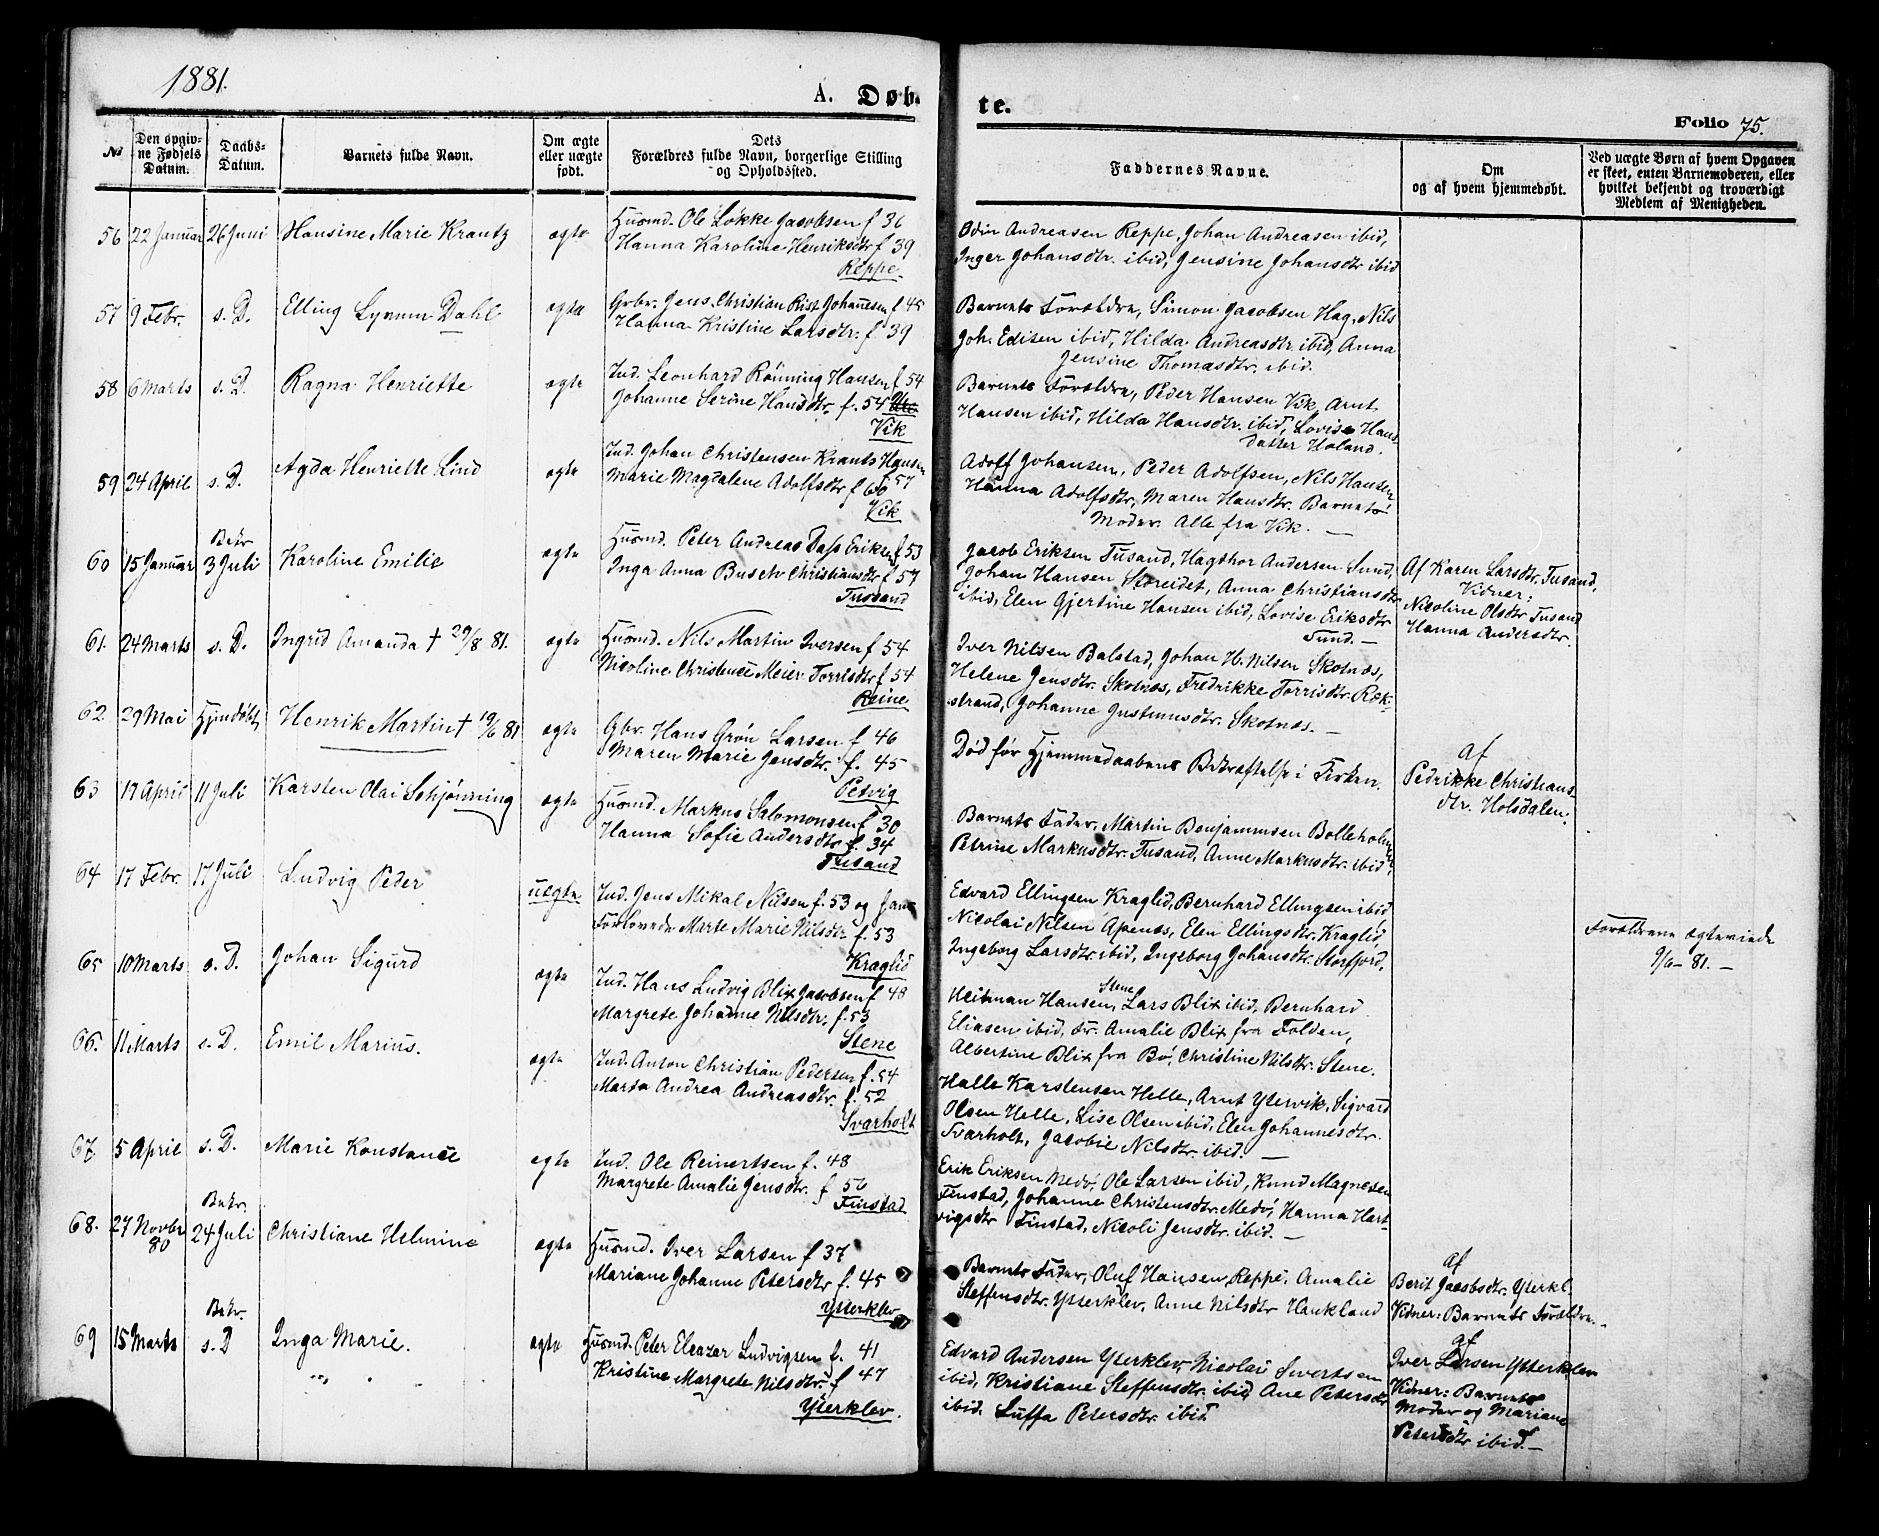 1881.
A. Døb-
te.
Folio 75.
No
Den opgiv-
ne Fødsels
Datum.
Daabs-
Datum.
Barnets fulde Navn.
Om ægte
eller uægte
født.
Dets
Forældres fulde Navn, borgerlige Stilling
og Opholdssted.
Faddernes Navne.
Om
og af hvem hjemmedøbt.
Ved uægte Børn af hvem Opgaven
er skeet, enten Barnemoderen, eller
hvilket bekjendt og troværdigt
Medlem af Menigheden.
56 22 Januar 26 Juni Hansine Marie Krantz ægte
Husmd. Ole Løkke Jacobsen f 36
Hanna Karoline Henriksdtr f 39
Reppe.
Odin Andreasen Reppe, Johan Andreasen ibid,
Inger Johansdtr. ibid, Jensine Johansdtr ibid
57 9 Febr. s. D. Elling Lynum Dahl ægte
Grbr. Jens Christian Rist Johansen f 45
Hanna Kristine Larsdtr. f 39
Barnets Forældre, Simon Jacobsen Hag, Nils
Joh. Edisen ibid, Hilda Andreasdtr. ibid, Anna
Jensine Thomasdtr. ibid.
58 6 Marts s. D. Ragna Henriette ægte
Ind. Leonhard Rönning Hansen f 54
Johanne Serine Hansdtr. f. 54
Vik
Barnets Forældre, Peder Hansen Vik, Arnt
Hansen ibid, Hilda Hansdtr. ibid, Lovise Hans
Datter Holand.
59 24 April s. D. Agda Henriette Lind ægte
Ind. Johan Christensen Krants Hansen
Marie Magdalene Adolfsdtr f 60 f 57
Vik
Adolf Johansen, Peder Adolfsen, Nils Hansen
Hanna Adolfsdtr, Maren Hansdtr. Barnets
Moder. Alle fra Vik. —
60 15 Januar Bekr. 3 Juli Karoline Emilie ægte
Husmd. Peter Andreas Dass Eriksen f 53
Inga Anna Busch Christiansdtr f 57
Tussand
Jacob Eriksen Tusand, Hagthor Andersen Sund,
Johan Hansen Storeidet, Anna Christiansdtr
ibid, Elen Gjertine Hansen ibid, Lovise Eriksdtr
Sund. —
Af Karen Larsdtr. Tusand,
Vidner:
Nicoline Olsdtr Tusand
Hanna Andersdtr.
61. 24 Marts s. D. Ingrid Amanda † 29/8 81. ægte
Husmd. Nils Martin Iversen f 54
Nicoline Christence Meier Torrisdtr f 54
Reine
Iver Nilsen Balstad, Johan H. Nilsen Skotnæs,
Helene Jensdtr. Skotnæs, Fredrikke Torrisdtr. Ræk-
strand, Johanne Justinusdtr. Skotnæs. —
62 29 Mai Hjemdøbt Henrik Martin † 19/6 81 ægte
Gbr. Hans Grøn Larsen f 46
Maren Marie Jensdtr. f. 45
Petvig
Død før Hjemmedaabens Bekræftelse i Kirken.
Af
Pedrikke Christians-
dtr. Holsdalen.
63 17 April 11 Juli Karsten Olai Schjønning ægte
Husmd. Markus Salomonsen f 30
Hanna Sofie Andersdtr f. 34
Tusand
Barnets Fader, Martin Benjaminsen Bolleholmen
Petrine Markusdtr. Tusand, Anne Markusdtr. ibid.
64 17 Febr. 17 Juli Ludvig Peder uegte
Ind. Jens Mikal Nilsen f. 53 og hans
Forlovede Marte Marie Nilsdtr f. 53
Kraglid
Edvard Ellingsen Kraglid, Bernhard Ellingsen ibid
Nicolai Nilsen Apenæs, Elen Ellingsdtr. Kraglid,
Ingeborg Larsdtr ibid, Ingeborg Johansdtr. Storfjord.
Forældrene ægteviede
9/6 - 81. —
65 10 Marts s. D. Johan Sigurd ægte
Ind. Hans Ludvig Blix Jacobsen f 48
Margrete Johanne Nilsdtr. f. 53
Stene
Heitman Hansen Stene, Lars Blix ibid, Bernhard
Eliasen ibid, Fr. Amalie Blix fra Folden,
Albertine Blix fra Bø, Christine Nilsdtr. Stene.
66. 11 Marts s. D. Emil Marius. ægte
Ind. Anton Christian Pedersen f. 54
Marta Andrea Andreasdtr. f. 52
Svarholt
Halle Karstensen Helle, Arnt Ytervik, Sigvard
Olsen Helle, Lise Olsen ibid, Elen Johannesdtr.
Svarholt, Jacobie Nilsdtr. ibid. —
67. 5 April s. D. Marie Konstance egte
Ind. Ole Reinertsen f. 48
Margrete Amalie Jensdtr. f 56
Finstad
Erik Eriksen Medø, Ole Larsen ibid, Knud Magnesen
Finstad, Johanne Christensdtr. Medø, Hanna Hart-
vigsdtr Finstad, Nicoli Jensdtr. ibid. —
68. 27 Novbr 80 Bekr. 24 Juli Christiane Helmine ægte
Husmd. Iver Larsen f 37
Mariane Johanne Petersdtr f. 45
Ytterklev
Barnets Fader, Oluf Hansen, Reppe, Amalie
Steffensdtr. Ytterklev, Anne Nilsdtr Haukland
af
Berit Jacobsdtr. Yterkl.
Vidner: Barnets Forældre.
69 15 Marts Bekr. s. D Inga Marie. ægte
Husmd. Peter Eleazar Ludvigsen f. 41
Kristine Margrete Nilsdtr. f 47
Yterklev.
Edvard Andersen Yterklev, Nicolai Sivertsen
ibid, Kristiane Steffensdtr. ibid, Ane Petersdtr
ibid. Luffa Petersdtr. ibid.
af
Iver Larsen Ytterklev
Vidner: Barnets
Moder og Mariane
Petersdtr ibid. —